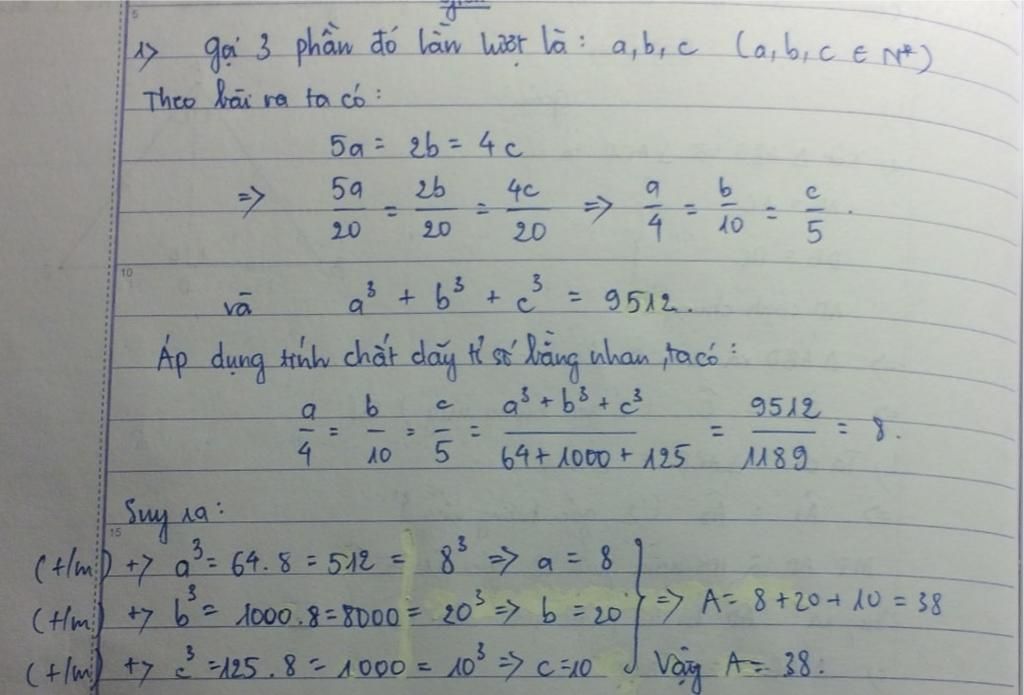 giải
5
1> gọi 3 phần đó lần lượt là: a, b, c (a, b, c ∈ N*)
Theo bài ra ta có:
5a = 2b = 4c
=> 5a/20 = 2b/20 = 4c/20 => a/4 = b/10 = c/5.
10
và a³ + b³ + c³ = 9512.
Áp dụng tính chất dãy tỉ số bằng nhau, ta có:
a/4 = b/10 = c/5 = (a³ + b³ + c³)/(64 + 1000 + 125) = 9512/1189 = 8.
Suy ra:
15
(t/m) +> a³ = 64.8 = 512 = 8³ => a = 8
(t/m) +> b³ = 1000.8 = 8000 = 20³ => b = 20 } => A = 8 + 20 + 10 = 38
(t/m) +> c³ = 125.8 = 1000 = 10³ => c = 10 Vậy A = 38.